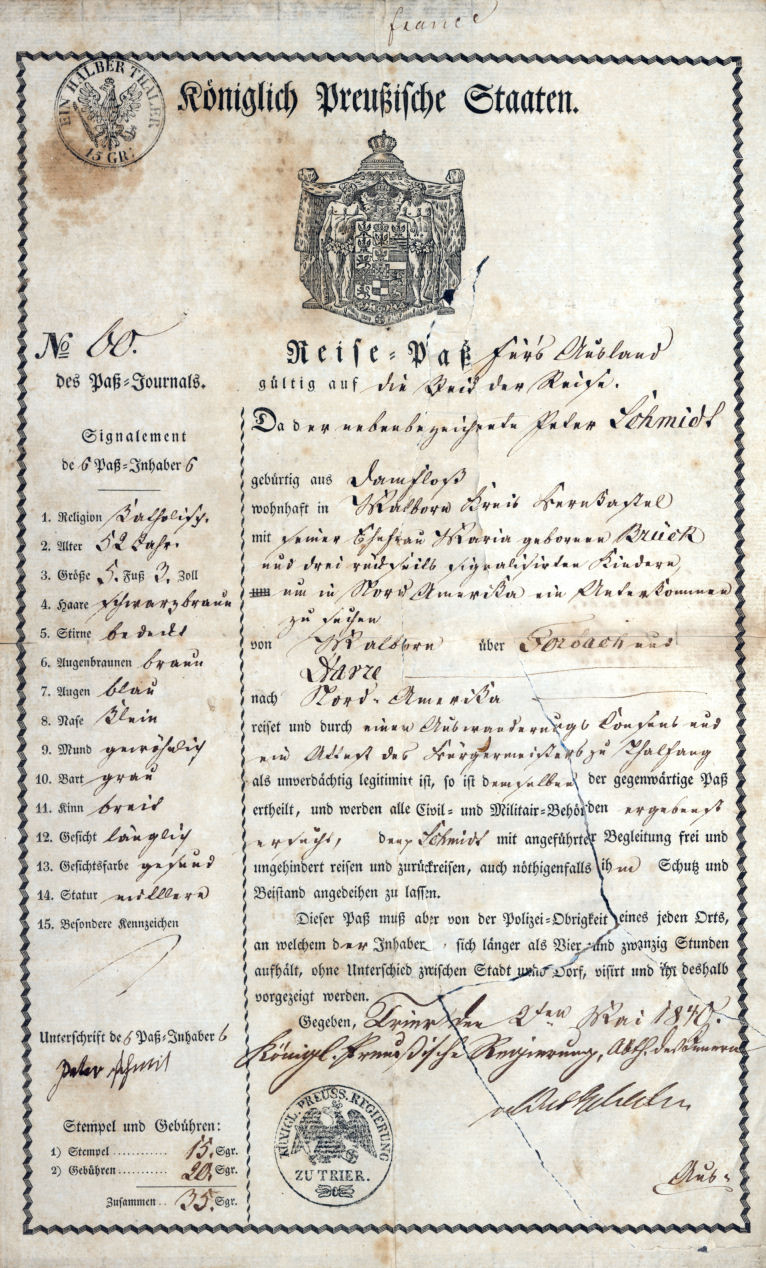 france
EIN HALBER THALER
15 GR:
Königlich Preußische Staaten.
No 60.
des Paß-Journals.
Signalement
des Paß-Inhabers
1. Religion Katholisch.
2. Alter 52 Jahr.
3. Größe 5. Fuß 3. Zoll
4. Haare schwarzbraun
5. Stirne bedeckt
6. Augenbraunen braun
7. Augen blau
8. Nase klein
9. Mund gewöhnlich
10. Bart grau
11. Kinn breit
12. Gesicht länglich
13. Gesichtsfarbe gesund
14. Statur mittlere
15. Besondere Kennzeichen
Unterschrift des Paß-Inhabers
Peter schmit
Stempel und Gebühren:
1) Stempel ............ 15. Sgr.
2) Gebühren ........... 20. Sgr.
Zusammen .. 35. Sgr.
Reise-Paß fürs Ausland
gültig auf die Zeit der Reise.
Da der nebenbezeichnete Peter Schmidt
gebürtig aus Damfloß
wohnhaft in Malborn Kreis Bernkastel
mit seiner Ehefrau Maria geborenen Brück
und drei rückseits signalisirten Kindern,
um in Nord Amerika ein Unterkommen
zu suchen
von Malborn über Forbach und
Havre
nach Nord-Amerika
reiset und durch einen Auswanderungs Consens und
ein Attest des Bürgermeisters zu Thalfang
als unverdächtig legitimirt ist, so ist demselben der gegenwärtige Paß
ertheilt, und werden alle Civil- und Militair-Behörden ergebenst
ersucht, den p Schmidt mit angeführter Begleitung frei und
ungehindert reisen und zurückreisen, auch nöthigenfalls ihm Schutz und
Beistand angedeihen zu lassen.
Dieser Paß muß aber von der Polizei-Obrigkeit eines jeden Orts,
an welchem der Inhaber sich länger als Vier und zwanzig Stunden
aufhält, ohne Unterschied zwischen Stadt und Dorf, visirt und ihr deshalb
vorgezeigt werden.
Gegeben, Trier den 2ten Mai 1840.
Königl. Preußische Regierung, Abth. des Innern
KÖNIGL. PREUSS. REGIERUNG
ZU TRIER.
Aus-